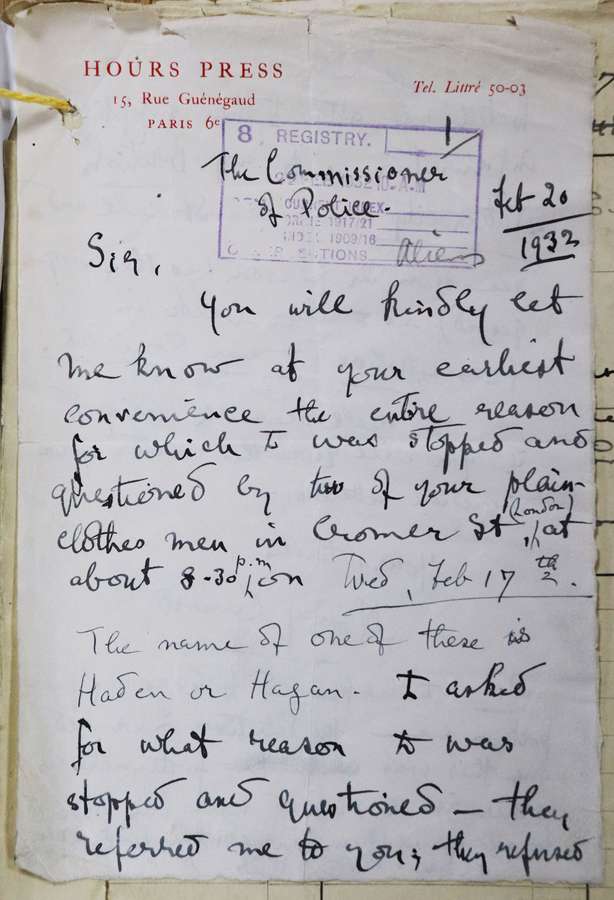 HOURS PRESS
15, Rue Guénégaud
PARIS 6e
Tel. Littré 50-03
8 REGISTRY.
The Commissioner
of Police.
Aliens
Feb 20
1932
Sir,
You will kindly let
me know at your earliest
convenience the entire reason
for which I was stopped and
questioned by two of your plain-
clothes men in Cromer St, (London) at
about 8-30 p.m on Wed, Feb 17th.
The name of one of these is
Haden or Hagan. I asked
for what reason I was
stopped and questioned — they
referred me to you; they refused